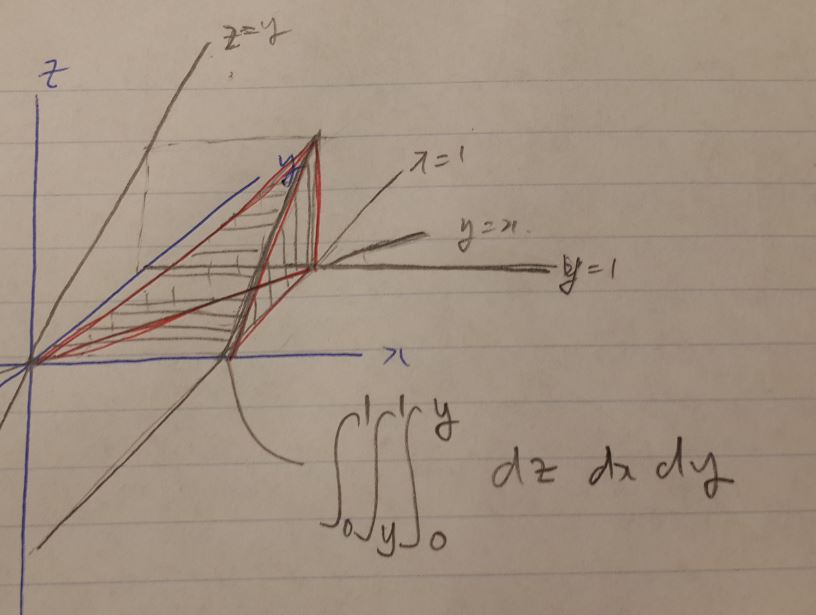 z=y
z
y
x=1
y=x
y=1
x
∫₀¹∫_y¹∫₀^y dz dx dy